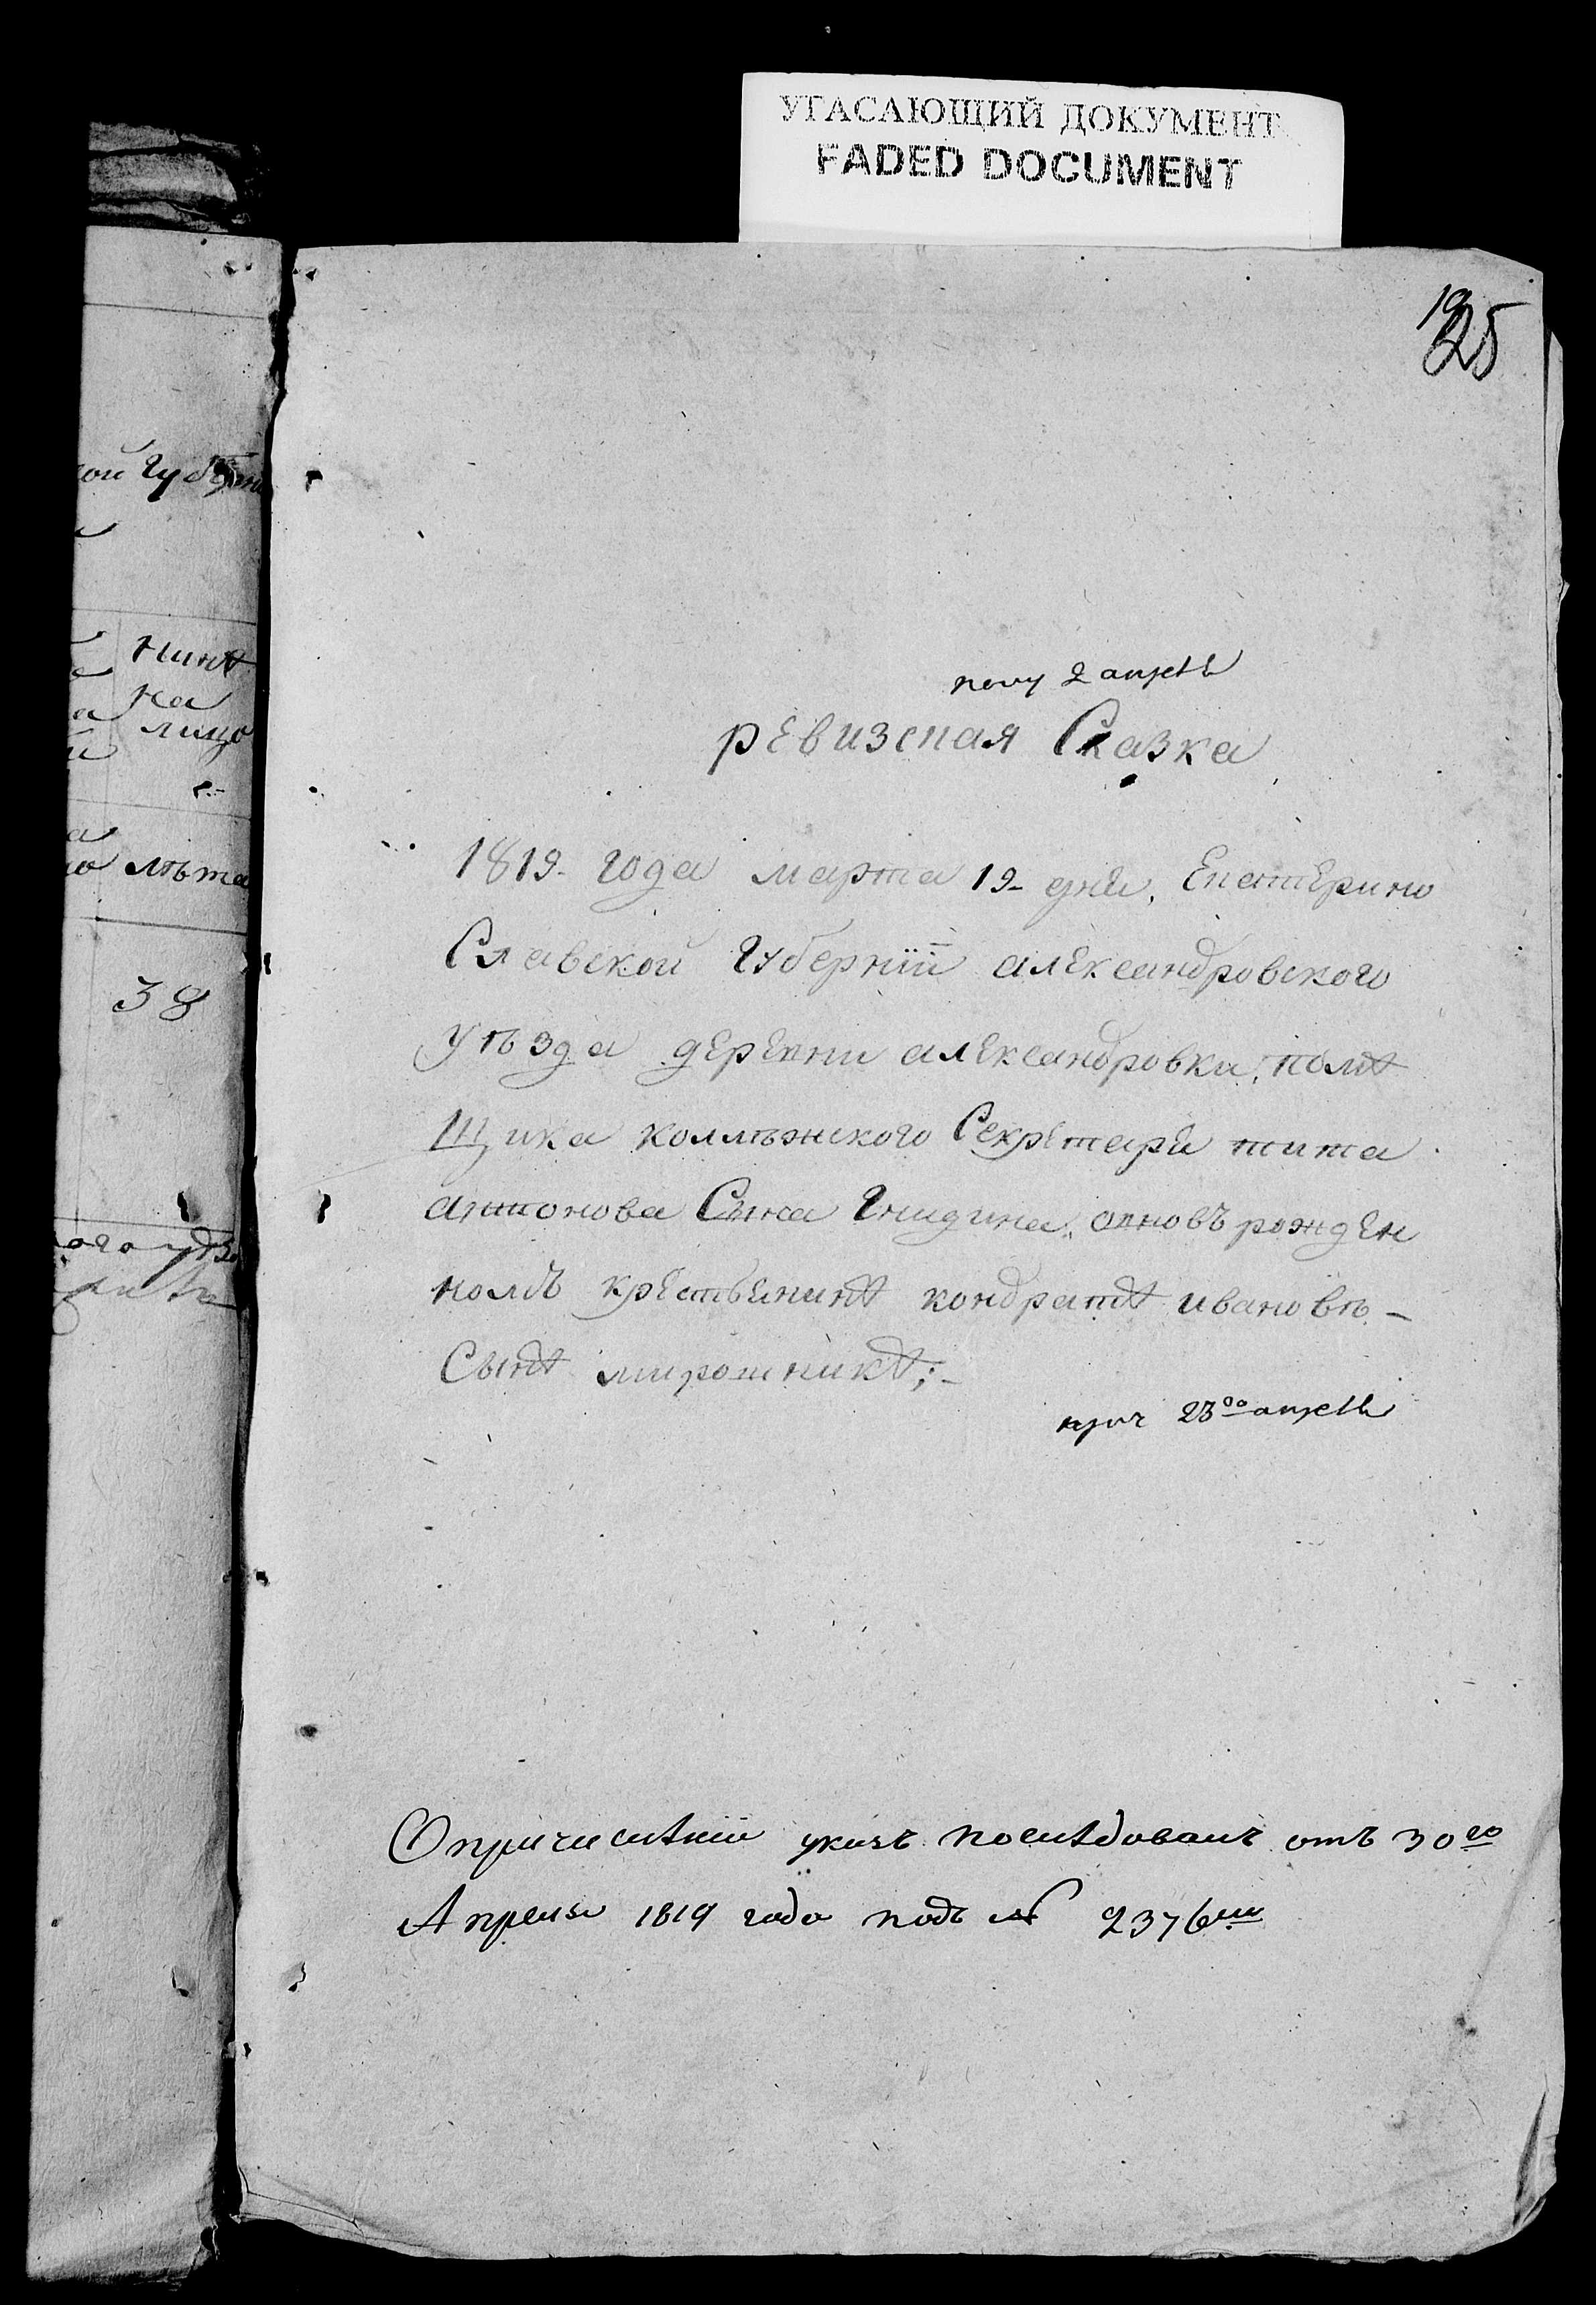 УГАСАЮЩИЙ ДОКУМЕНТ
FADED DOCUMENT
25
ой Губерн
нинѣ
на
лицо
лѣта
38
полу 2 апрелѣ
ревизская Сказка
1819 года марта 19 дня, Екатерино
Славской Губернїи александровского
уѣзда деревни александровки, помѣ
щика коллѣжского Секретаря тита
антонова Сына Гнидина, оновъ рожден
номъ крестьенинѣ кондратѣ ивановѣ
Сынѣ мирошникѣ;
прич 23го апрелѣ
О причислѣнии указъ послѣдовалъ отъ 30го
Апреля 1819 года подъ № 2376мъ